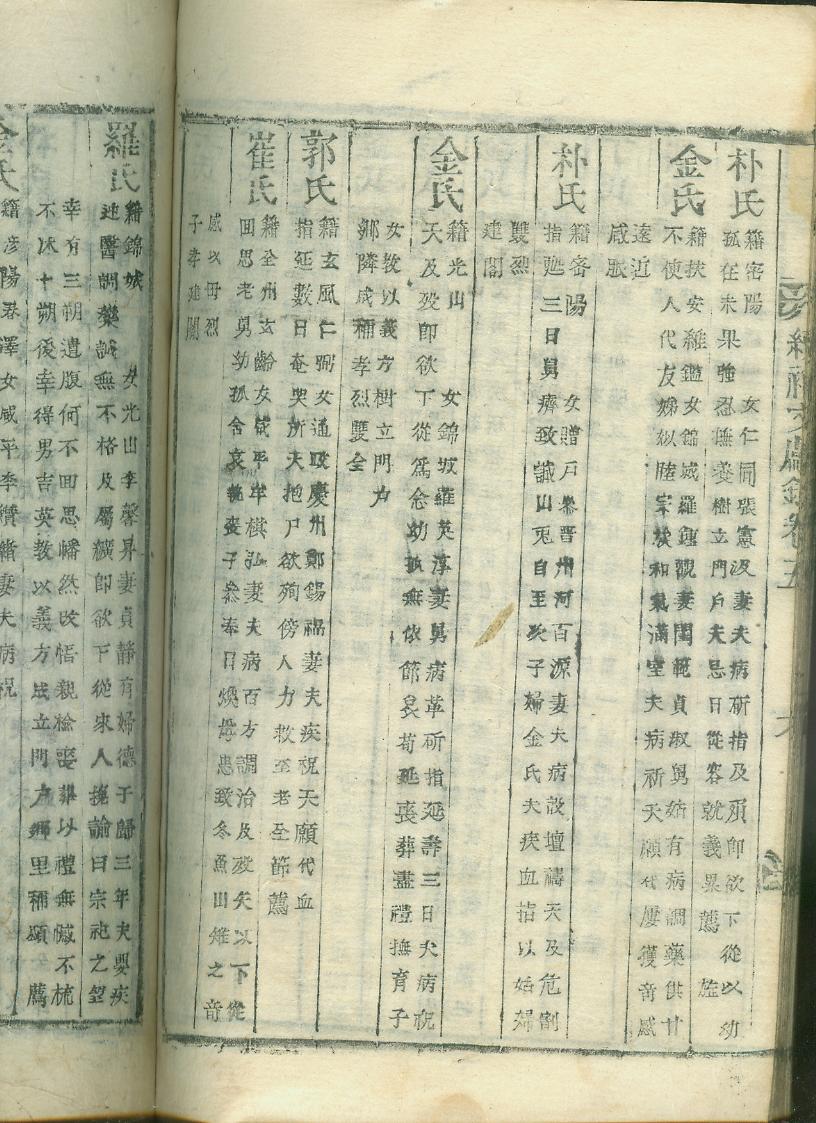 卷五
朴氏
籍密陽 女仁同張憲汲妻夫病斫指及殞即欲下從以幼
孤在未果強忍撫養樹立門戶夫忌日從容就義累薦 旌
金氏
籍扶安維鑑女錦城羅鍾觀妻閨範貞淑舅姑有病調藥供甘
不使人代友娣姒睦宗族和氣滿室夫病祈天願代屢獲奇感
遠近
咸服
朴氏
籍密陽 女贈戶參晋州河百源妻夫病設壇禱天及危割
指甦三日舅癠致誠山兎自至次子婦金氏夫疾血指以姑婦
雙烈
建閣
金氏
籍光山 女錦城羅英淳妻舅病革斫指延壽三日夫病祝
天及歿即欲下從爲念幼孤無依節哀苟延喪葬盡禮撫育子
女敎以義方樹立門戶
鄰隣咸稱孝烈雙全
郭氏
籍玄風仁弼女通政慶州鄭錫福妻夫疾祝天願代血
指延數日奄哭所夫抱尸欲殉傍人力救至老全節薦
崔氏
籍全州玄齡女咸平牟棋弘妻夫病百方調治及歿矢以下從
回思老舅幼孤舍哀執喪子參奉日煥母患致冬魚山雉之奇
咸以母烈
子孝建閣
羅氏
籍錦城 女光山李馨昇妻貞靜有婦德于歸三年夫嬰疾
迎醫調藥誠無不格及屬纊即欲下從家人挽諭曰宗祀之望
幸有三朔遺腹何不回思幡然改悟親檢喪葬以禮無憾不梳
不沐十朔後幸得男吉英敎以義方成立門戶鄉里稱頌 薦
金氏
籍彦陽泰澤女咸平李纘緖妻夫病祝